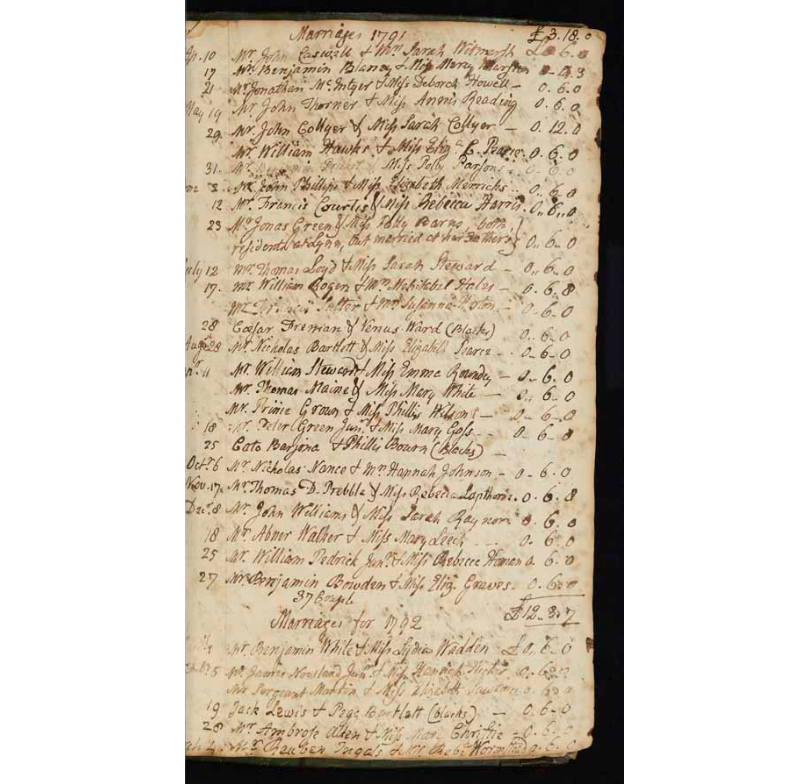 Marriages 1791 £3.18.0
Ap. 10 Mr. John Caswell & Mrs. Sarah £0.6.0
17 Mr. Benjamin Blaney & Miss Mary Marston 0-4.3
21 Mr. Jonathan McIntyer & Miss Deborah Howell - 0.6.0
May 19 Mr. John Thorner & Miss Annis Reading 0.6.0
29 Mr. John Collyer & Miss Sarah Collyer - 0.12.0
Mr. William Hawks & Miss Eliza C. Pearce 0.6.0
31. Miss Polly Parsons 0-6-0
Mr. John Phillips & Miss Elizabeth Merricks 0.6.0
12 Mr. Francis Courtis & Miss Rebecca Harris 0..6..0
23 Mr. Jonas Green & Miss Polly Barns both
residents at Lynn, but married at her Fathers 0..6-0
July 12 Mr. Thomas Loyd & Miss Sarah Steward - 0..6-0
17. Mr. William Rogers & Mrs. Mehitabel Hales - 0.6.8
& Mrs. Susanna - 0.6.0
28 Cæsar Freman & Venus Ward (Blacks) 0.6.0
Augt. 28 Mr. Nicholas Bartlett & Miss Elizabeth Pearce 0-6-0
11 Mr. William Steward & Miss Emma Roundey - 0-6.0
Mr. Thomas Maine & Miss Mary White - 0.. 6.0
Mr. Prince Grown & Miss Phillis Wilsons - 0-6-0
18 Mr. Peter Green Junr. & Miss Mary Goss - 0-6-0
25 Cato Barjona & Phillis Bourn (Blacks) -
Octr. 6 Mr. Nicholas Nance & Mrs. Hannah Johnson - 0-6.0
Nov. 17. Mr. Thomas D. Prebble & Miss Rebecca Lapthorn. 0.6.8
Decr. 8 Mr. John Williams & Miss Sarah Raynor 0.6.0
18 Mr. Abner Walker & Miss Mary Leech 0-6.0
25 Mr. William Pedrick Junr. & Miss Rebecca Homan 0.6-0
27 Mr. Benjamin Bowden & Miss Eliz. Graves. 0.6-0
37 Couple
£12-3.7
Marriages for 1792
Mr. Benjamin White & Miss Lydia Wadden £0.6-0
5 Mr. James Junr. & Miss Hannah 0-6
Mr. Sergeant Martin & Miss Elizabeth 0.6.0
19 Jack Lewis & Pegg Bartlett (blacks) 0.6-0
28 Mr. Ambrose Allen & Miss Mary Christie - 0-6-0
Mr. Reuben Ingals & Mrs. Rebe. Wormsted 0.6.0